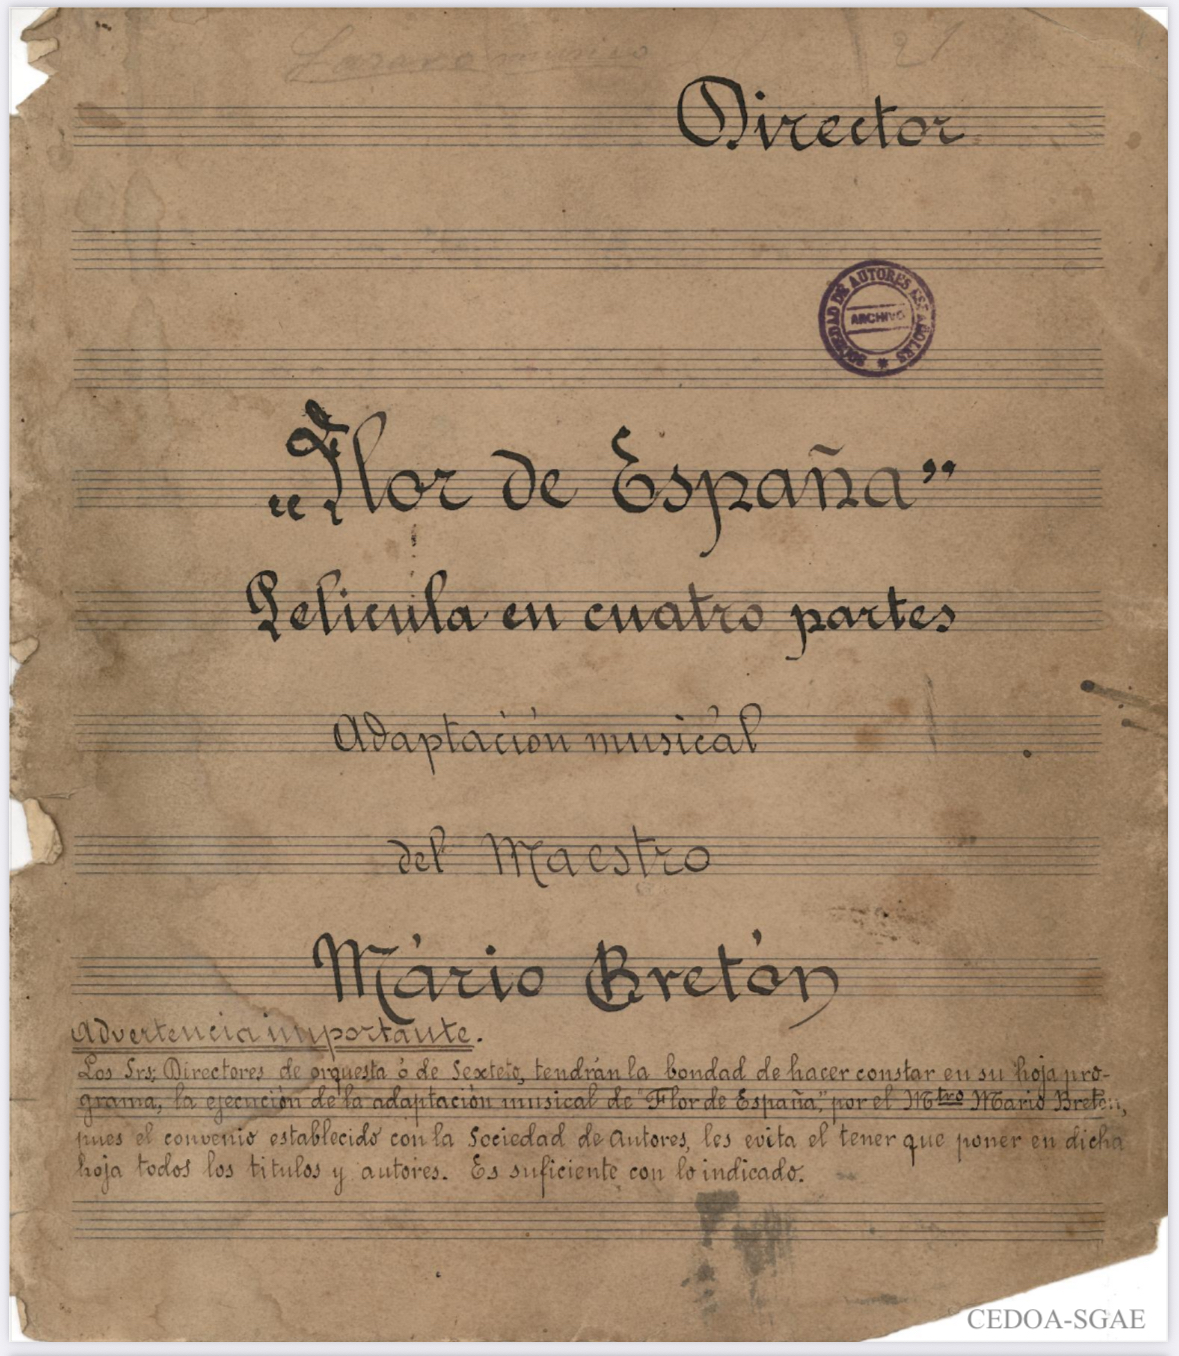 21
Director
SOCIEDAD DE AUTORES ESPAÑOLES
ARCHIVO
"Flor de España"
Pelicula en cuatro partes
Adaptación musical
del Maestro
Mário Bretón
Advertencia importante.
Los Srs. Directores de orquesta ó de Sexteto, tendrán la bondad de hacer constar en su hoja pro-
grama, la ejecución de la adaptación musical de "Flor de España," por el Mtro Mario Bretón,
pues el convenio establecido con la Sociedad de Autores, les evita el tener que poner en dicha
hoja todos los titulos y autores. Es suficiente con lo indicado.
CEDOA-SGAE